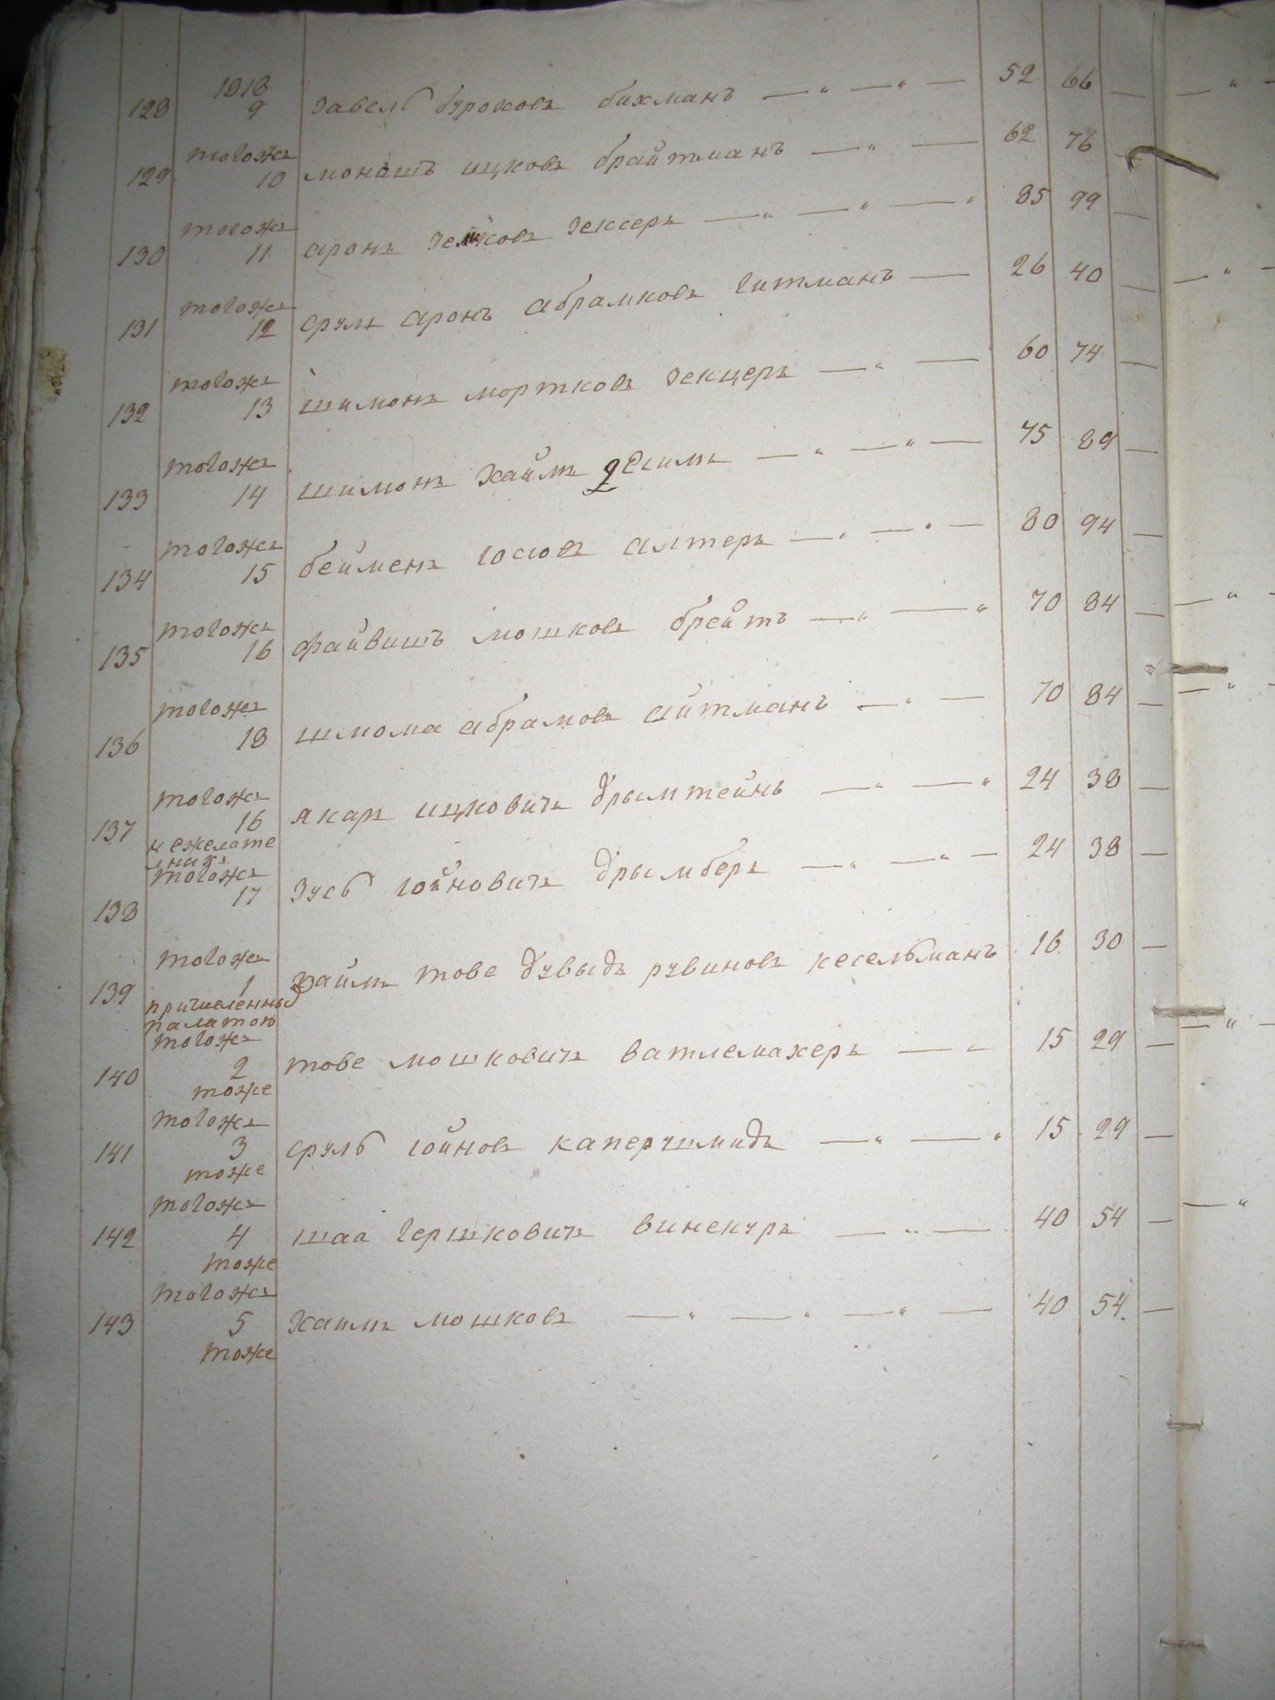 1818
128 9 Завель бурохов бихманъ — " — " — 52 66 —
тогожъ
129 10 монашъ ицковъ брайтманъ — " — 62 76 —
тогожъ
130 11 аронъ Зексеръ — " — " — " 85 99 —
тогожъ
131 12 срулъ аронъ абрамковъ гитманъ — 26 40 —
тогожъ
132 13 шимонъ мортковъ Зекцеръ — " — 60 74 —
тогожъ
133 14 шимонъ хаймъ — " — " — 75 89 —
тогожъ
134 15 беймена иосиовъ алтеръ — " — " — 80 94 —
тогожъ
135 16 файвишъ мошковъ брейтъ — " — " 70 84 —
тогожъ
136 18 шмома абрамовъ айтманъ — " — 70 84 —
тогожъ
137 16 ицковичъ — " — " 24 38 —
нежелате
льникъ
тогожъ
138 17 Зусь иойновичъ дрымберъ — " — " — 24 38 —
тогожъ
139 1 хаимъ тове дувыдъ рувиновъ кесельманъ 16 30 —
причисленны
палатою
тогожъ
140 2 тове мошковичъ ватлемахеръ — " 15 29 —
тоже
тогожъ
141 3 сруль иойновъ каперушмидъ — " — " 15 29 —
тоже
тогожъ
142 4 шаа гершковичъ винекуръ — " — 40 54 —
тоже
тогожъ
143 5 хаимъ мошковъ — " — " — " — 40 54 —
тоже